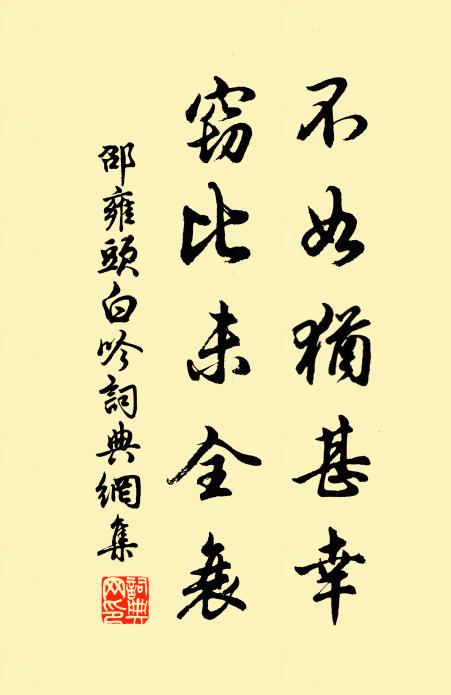 不如猶甚幸
窃比未全衰
邵雍頭白吟詞典網集
詞典网印